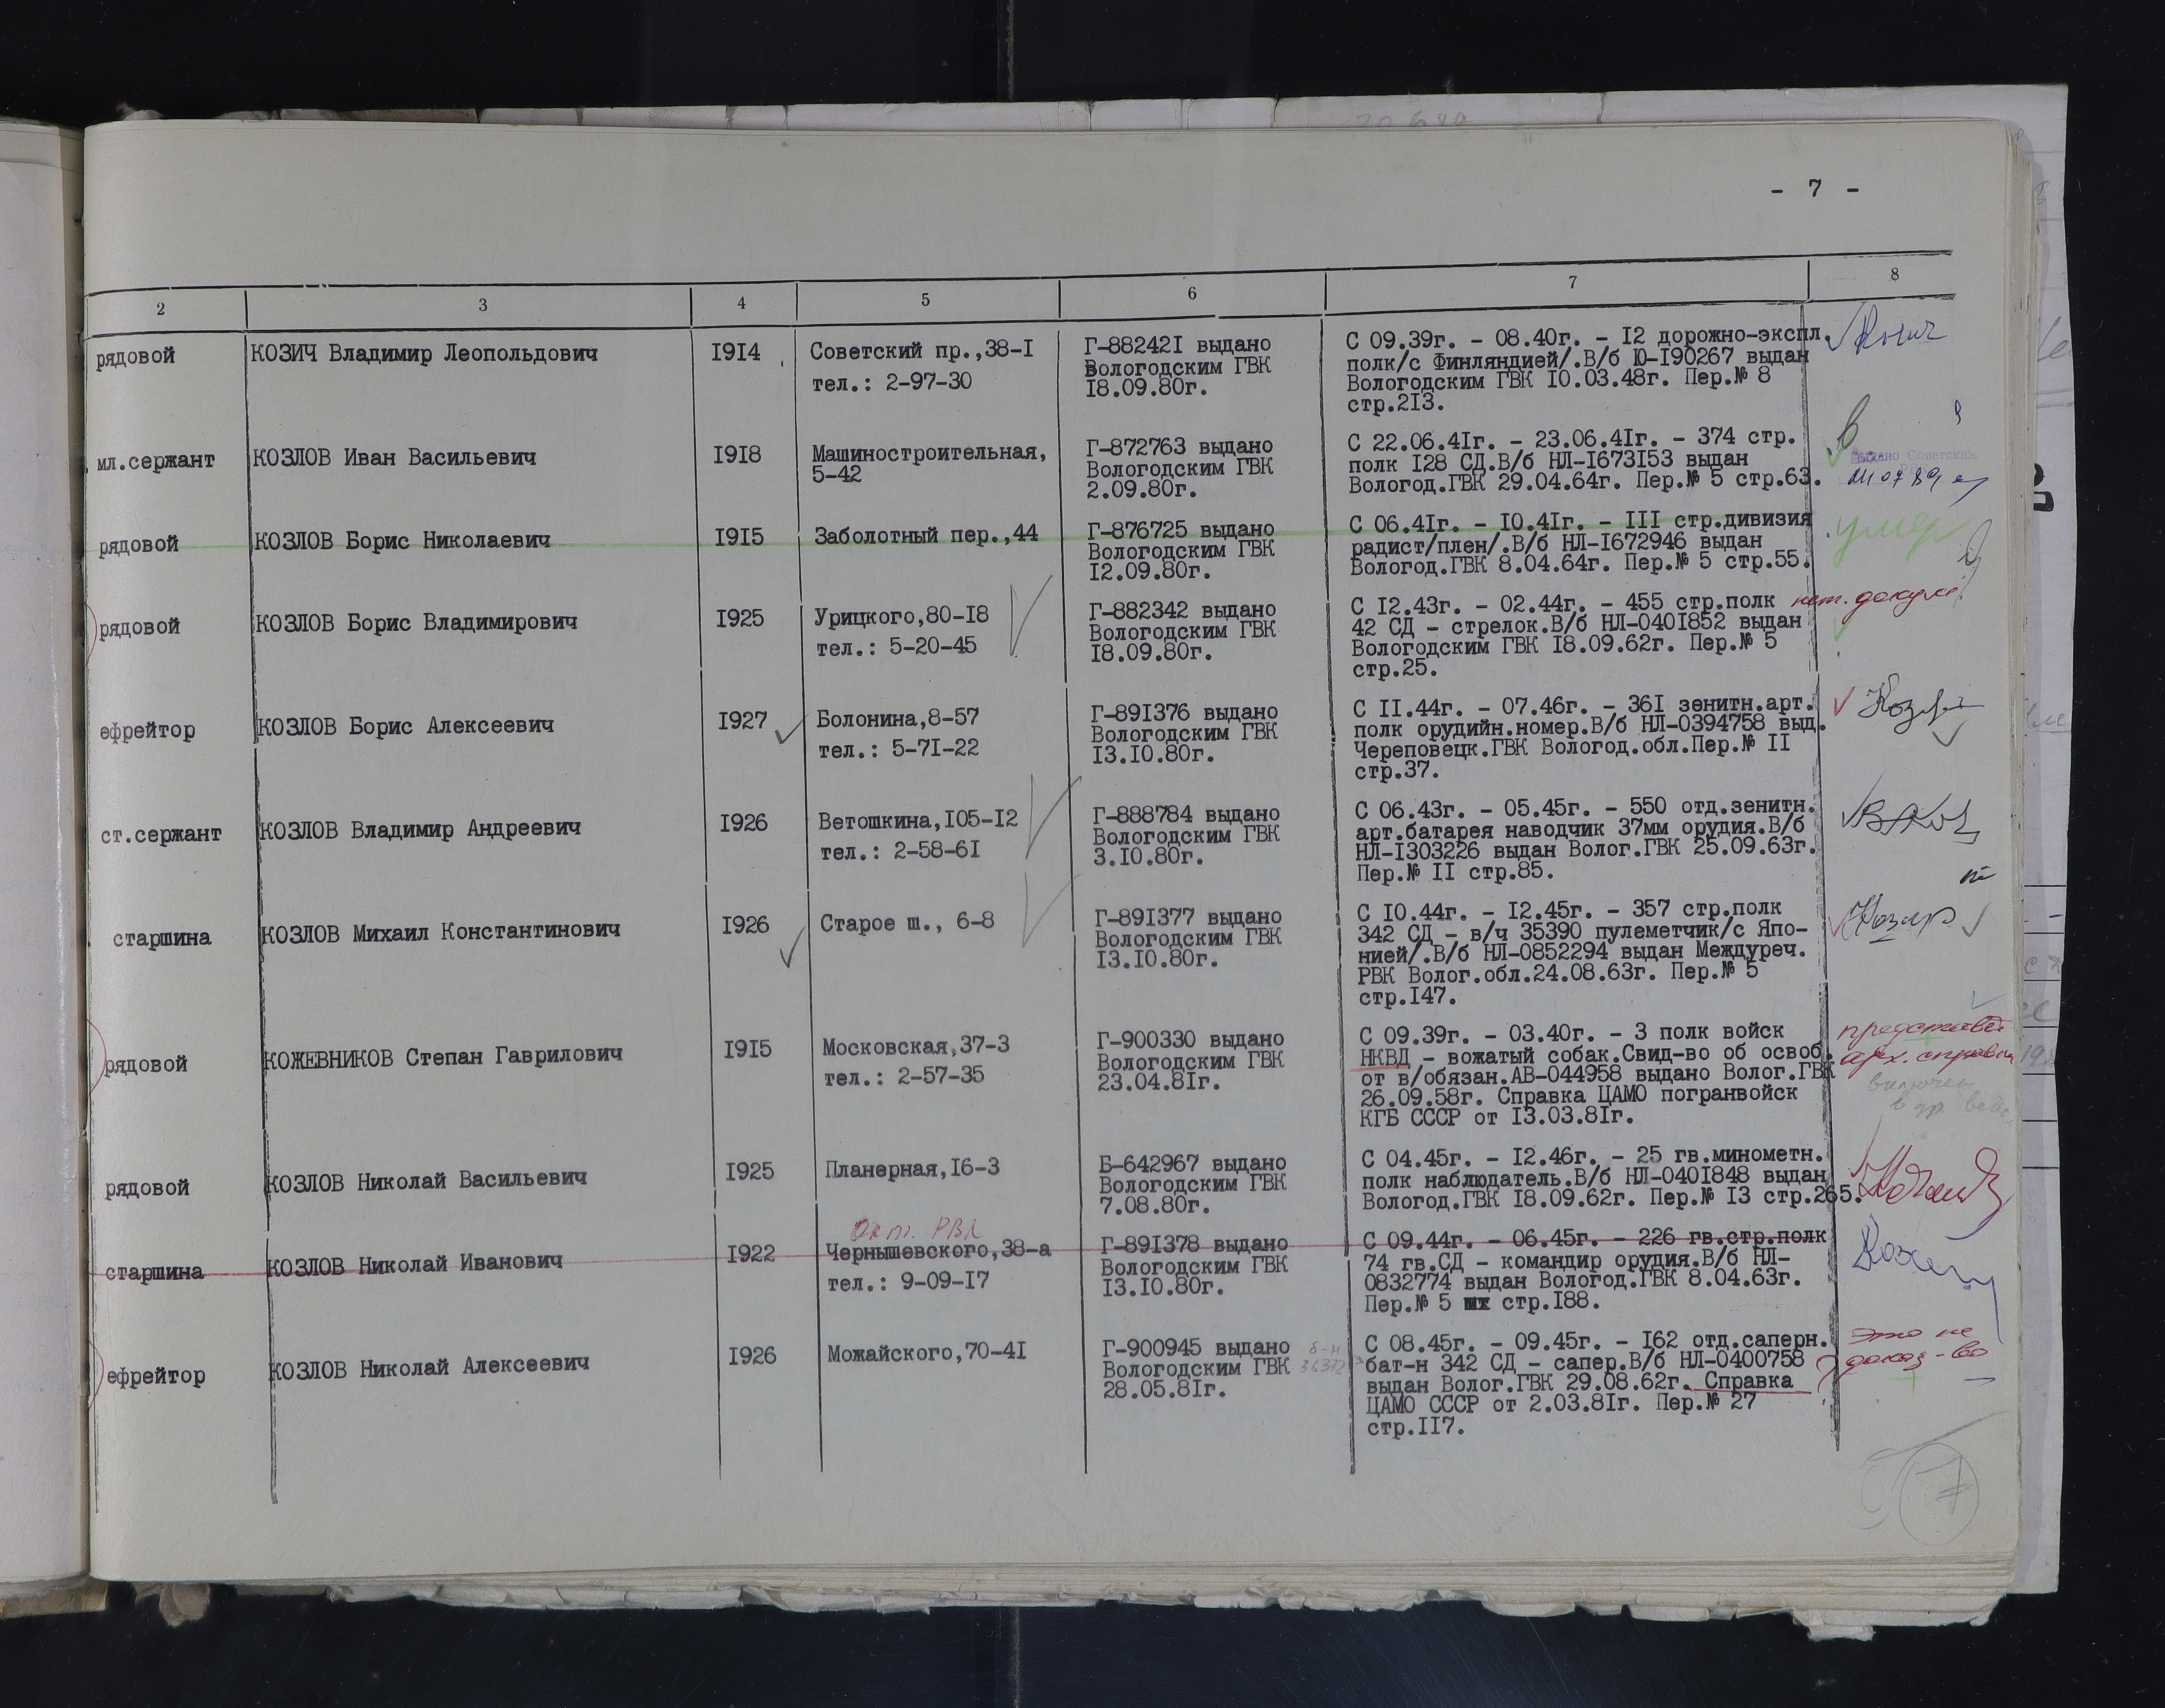 - 7 -
2 3 4 5 6 7 8
рядовой КОЗИЧ Владимир Леопольдович I9I4 Советский пр.,38-I Г-88242I выдано С 09.39г. - 08.40г. - I2 дорожно-экспл.
тел.: 2-97-30 Вологодским ГВК полк/с Финляндией/.В/б Ю-I90267 выдан
I8.09.80г. Вологодским ГВК I0.03.48г. Пер.№ 8
стр.2I3.
мл.сержант КОЗЛОВ Иван Васильевич I9I8 Машиностроительная, Г-872763 выдано С 22.06.4Iг. - 23.06.4Iг. - 374 стр.
5-42 Вологодским ГВК полк I28 СД.В/б НЛ-I673I53 выдан Выдано Советским
2.09.80г. Вологод.ГВК 29.04.64г. Пер.№ 5 стр.63.
рядовой КОЗЛОВ Борис Николаевич I9I5 Заболотный пер.,44 Г-876725 выдано С 06.4Iг. - I0.4Iг. - III стр.дивизия умер
Вологодским ГВК радист/плен/.В/б НЛ-I672946 выдан
I2.09.80г. Вологод.ГВК 8.04.64г. Пер.№ 5 стр.55.
рядовой КОЗЛОВ Борис Владимирович I925 Урицкого,80-I8 Г-882342 выдано С I2.43г. - 02.44г. - 455 стр.полк нет. докум.
тел.: 5-20-45 Вологодским ГВК 42 СД - стрелок.В/б НЛ-040I852 выдан
I8.09.80г. Вологодским ГВК I8.09.62г. Пер.№ 5
стр.25.
ефрейтор КОЗЛОВ Борис Алексеевич I927 Болонина,8-57 Г-89I376 выдано С II.44г. - 07.46г. - 36I зенитн.арт.
тел.: 5-7I-22 Вологодским ГВК полк орудийн.номер.В/б НЛ-0394758 выд.
I3.I0.80г. Череповецк.ГВК Вологод.обл.Пер.№ II
стр.37.
ст.сержант КОЗЛОВ Владимир Андреевич I926 Ветошкина,I05-I2 Г-888784 выдано С 06.43г. - 05.45г. - 550 отд.зенитн.
тел.: 2-58-6I Вологодским ГВК арт.батарея наводчик 37мм орудия.В/б
3.I0.80г. НЛ-I303226 выдан Волог.ГВК 25.09.63г.
Пер.№ II стр.85.
старшина КОЗЛОВ Михаил Константинович I926 Старое ш., 6-8 Г-89I377 выдано С I0.44г. - I2.45г. - 357 стр.полк
Вологодским ГВК 342 СД - в/ч 35390 пулеметчик/с Япо-
I3.I0.80г. нией/.В/б НЛ-0852294 выдан Междуреч.
РВК Волог.обл.24.08.63г. Пер.№ 5
стр.I47.
рядовой КОЖЕВНИКОВ Степан Гаврилович I9I5 Московская,37-3 Г-900330 выдано С 09.39г. - 03.40г. - 3 полк войск
тел.: 2-57-35 Вологодским ГВК НКВД - вожатый собак.Свид-во об освоб. арх. справки
23.04.8Iг. от в/обязан.АВ-044958 выдано Волог.ГВК включен
26.09.58г. Справка ЦАМО погранвойск
КГБ СССР от I3.03.8Iг.
рядовой КОЗЛОВ Николай Васильевич I925 Планерная,I6-3 Б-642967 выдано С 04.45г. - I2.46г. - 25 гв.минометн.
Вологодским ГВК полк наблюдатель.В/б НЛ-040I848 выдан
7.08.80г. Вологод.ГВК I8.09.62г. Пер.№ I3 стр.265.
Окт. РВК
старшина КОЗЛОВ Николай Иванович I922 Чернышевского,38-а Г-89I378 выдано С 09.44г. - 06.45г. - 226 гв.стр.полк
тел.: 9-09-I7 Вологодским ГВК 74 гв.СД - командир орудия.В/б НЛ-
I3.I0.80г. 0832774 выдан Вологод.ГВК 8.04.63г.
Пер.№ 5 стр.I88.
ефрейтор КОЗЛОВ Николай Алексеевич I926 Можайского,70-4I Г-900945 выдано С 08.45г. - 09.45г. - I62 отд.саперн. это не
Вологодским ГВК бат-н 342 СД - сапер.В/б НЛ-0400758 доказ-во
28.05.8Iг. выдан Волог.ГВК 29.08.62г. Справка
ЦАМО СССР от 2.03.8Iг. Пер.№ 27
стр.II7.
7